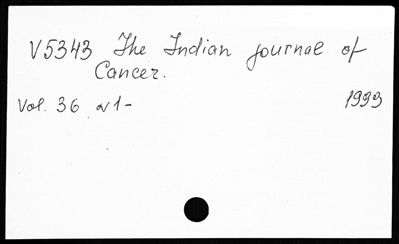 V5343 The Indian journal of
Cancer.
Vol. 36 N1- 1999